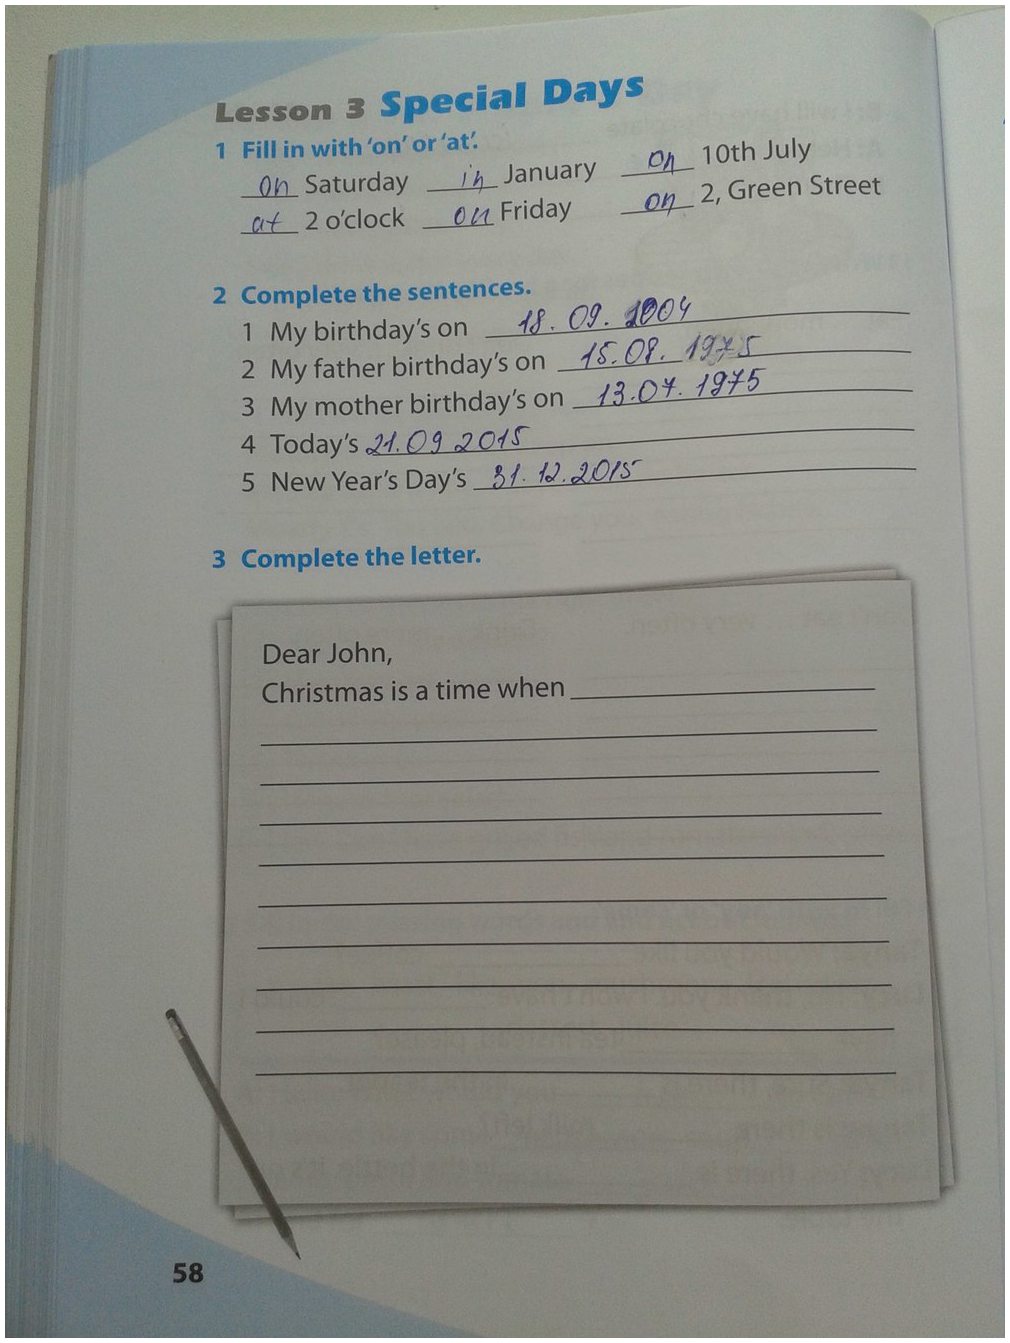 Lesson 3 Special Days
1 Fill in with 'on' or 'at'.
on Saturday in January on 10th July
at 2 o'clock on Friday on 2, Green Street
2 Complete the sentences.
1 My birthday's on 18. 09. 2004
2 My father birthday's on 15.08. 1975
3 My mother birthday's on 13.07. 1975
4 Today's 21.09 2015
5 New Year's Day's 31. 12. 2015
3 Complete the letter.
Dear John,
Christmas is a time when
58